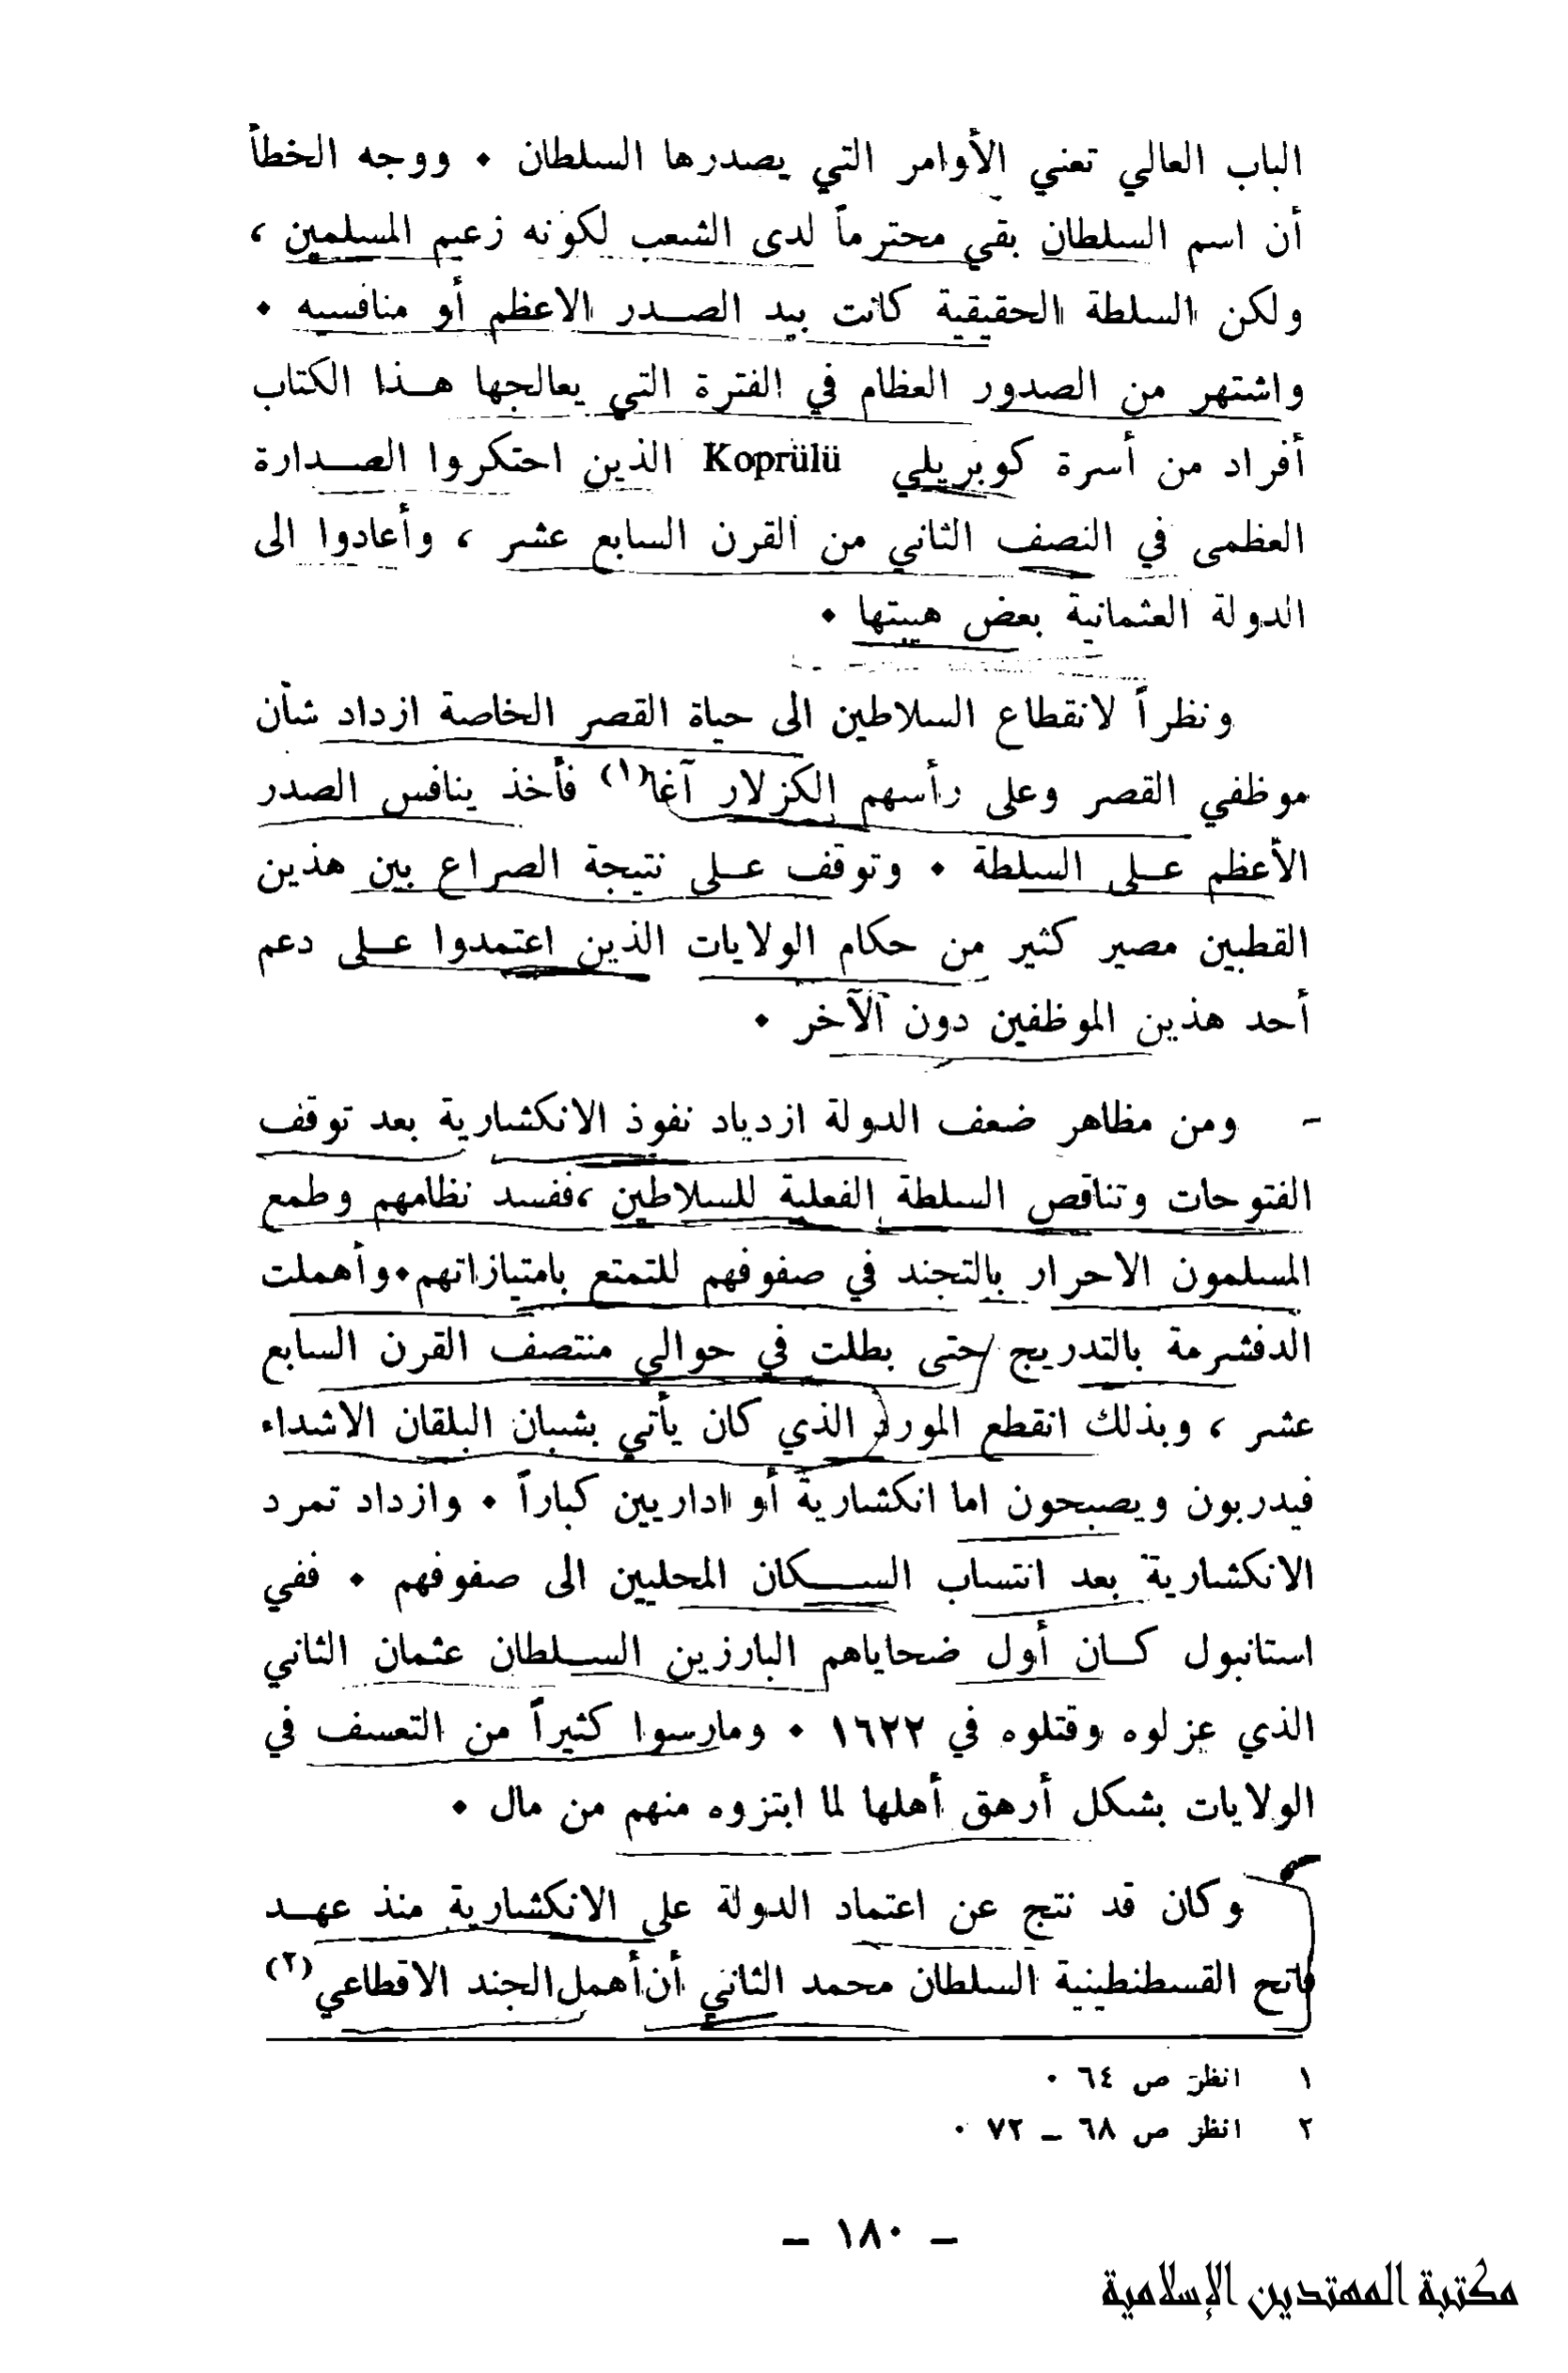 الباب العالي تعني الأوامر التي يصدرها السلطان ٠ ووجه الخطأ
أن اسم السلطان بقي محترماً لدى الشعب لكونه زعيم المسلمين ،
ولكن السلطة الحقيقية كانت بيد الصدر الاعظم أو منافسيه ٠
واشتهر من الصدور العظام في الفترة التي يعالجها هذا الكتاب
أفراد من أسرة كوبريلي Koprülü الذين احتكروا الصدارة
العظمى في النصف الثاني من القرن السابع عشر ، وأعادوا الى
الدولة العثمانية بعض هيبتها ٠
ونظراً لانقطاع السلاطين الى حياة القصر الخاصة ازداد شأن
موظفي القصر وعلى رأسهم الكزلار آغا(١) فأخذ ينافس الصدر
الأعظم على السلطة ٠ وتوقف على نتيجة الصراع بين هذين
القطبين مصير كثير من حكام الولايات الذين اعتمدوا على دعم
أحد هذين الموظفين دون الآخر ٠
- ومن مظاهر ضعف الدولة ازدياد نفوذ الانكشارية بعد توقف
الفتوحات وتناقص السلطة الفعلية للسلاطين ،ففسد نظامهم وطمع
المسلمون الاحرار بالتجند في صفوفهم للتمتع بامتيازاتهم٠وأهملت
الدفشرمة بالتدريج حتى بطلت في حوالي منتصف القرن السابع
عشر ، وبذلك انقطع المورد الذي كان يأتي بشبان البلقان الاشداء
فيدربون ويصبحون اما انكشارية أو اداريين كباراً ٠ وازداد تمرد
الانكشارية بعد انتساب السكان المحليين الى صفوفهم ٠ ففي
استانبول كان أول ضحاياهم البارزين السلطان عثمان الثاني
الذي عزلوه وقتلوه في ١٦٢٢ ٠ ومارسوا كثيراً من التعسف في
الولايات بشكل أرهق أهلها لما ابتزوه منهم من مال ٠
وكان قد نتج عن اعتماد الدولة على الانكشارية منذ عهد
فاتح القسطنطينية السلطان محمد الثاني أن أهمل الجند الاقطاعي(٢)
١ انظر ص ٦٤ ٠
٢ انظر ص ٦٨ – ٧٢ ٠
– ١٨٠ –
مكتبة المهتدين الإسلامية